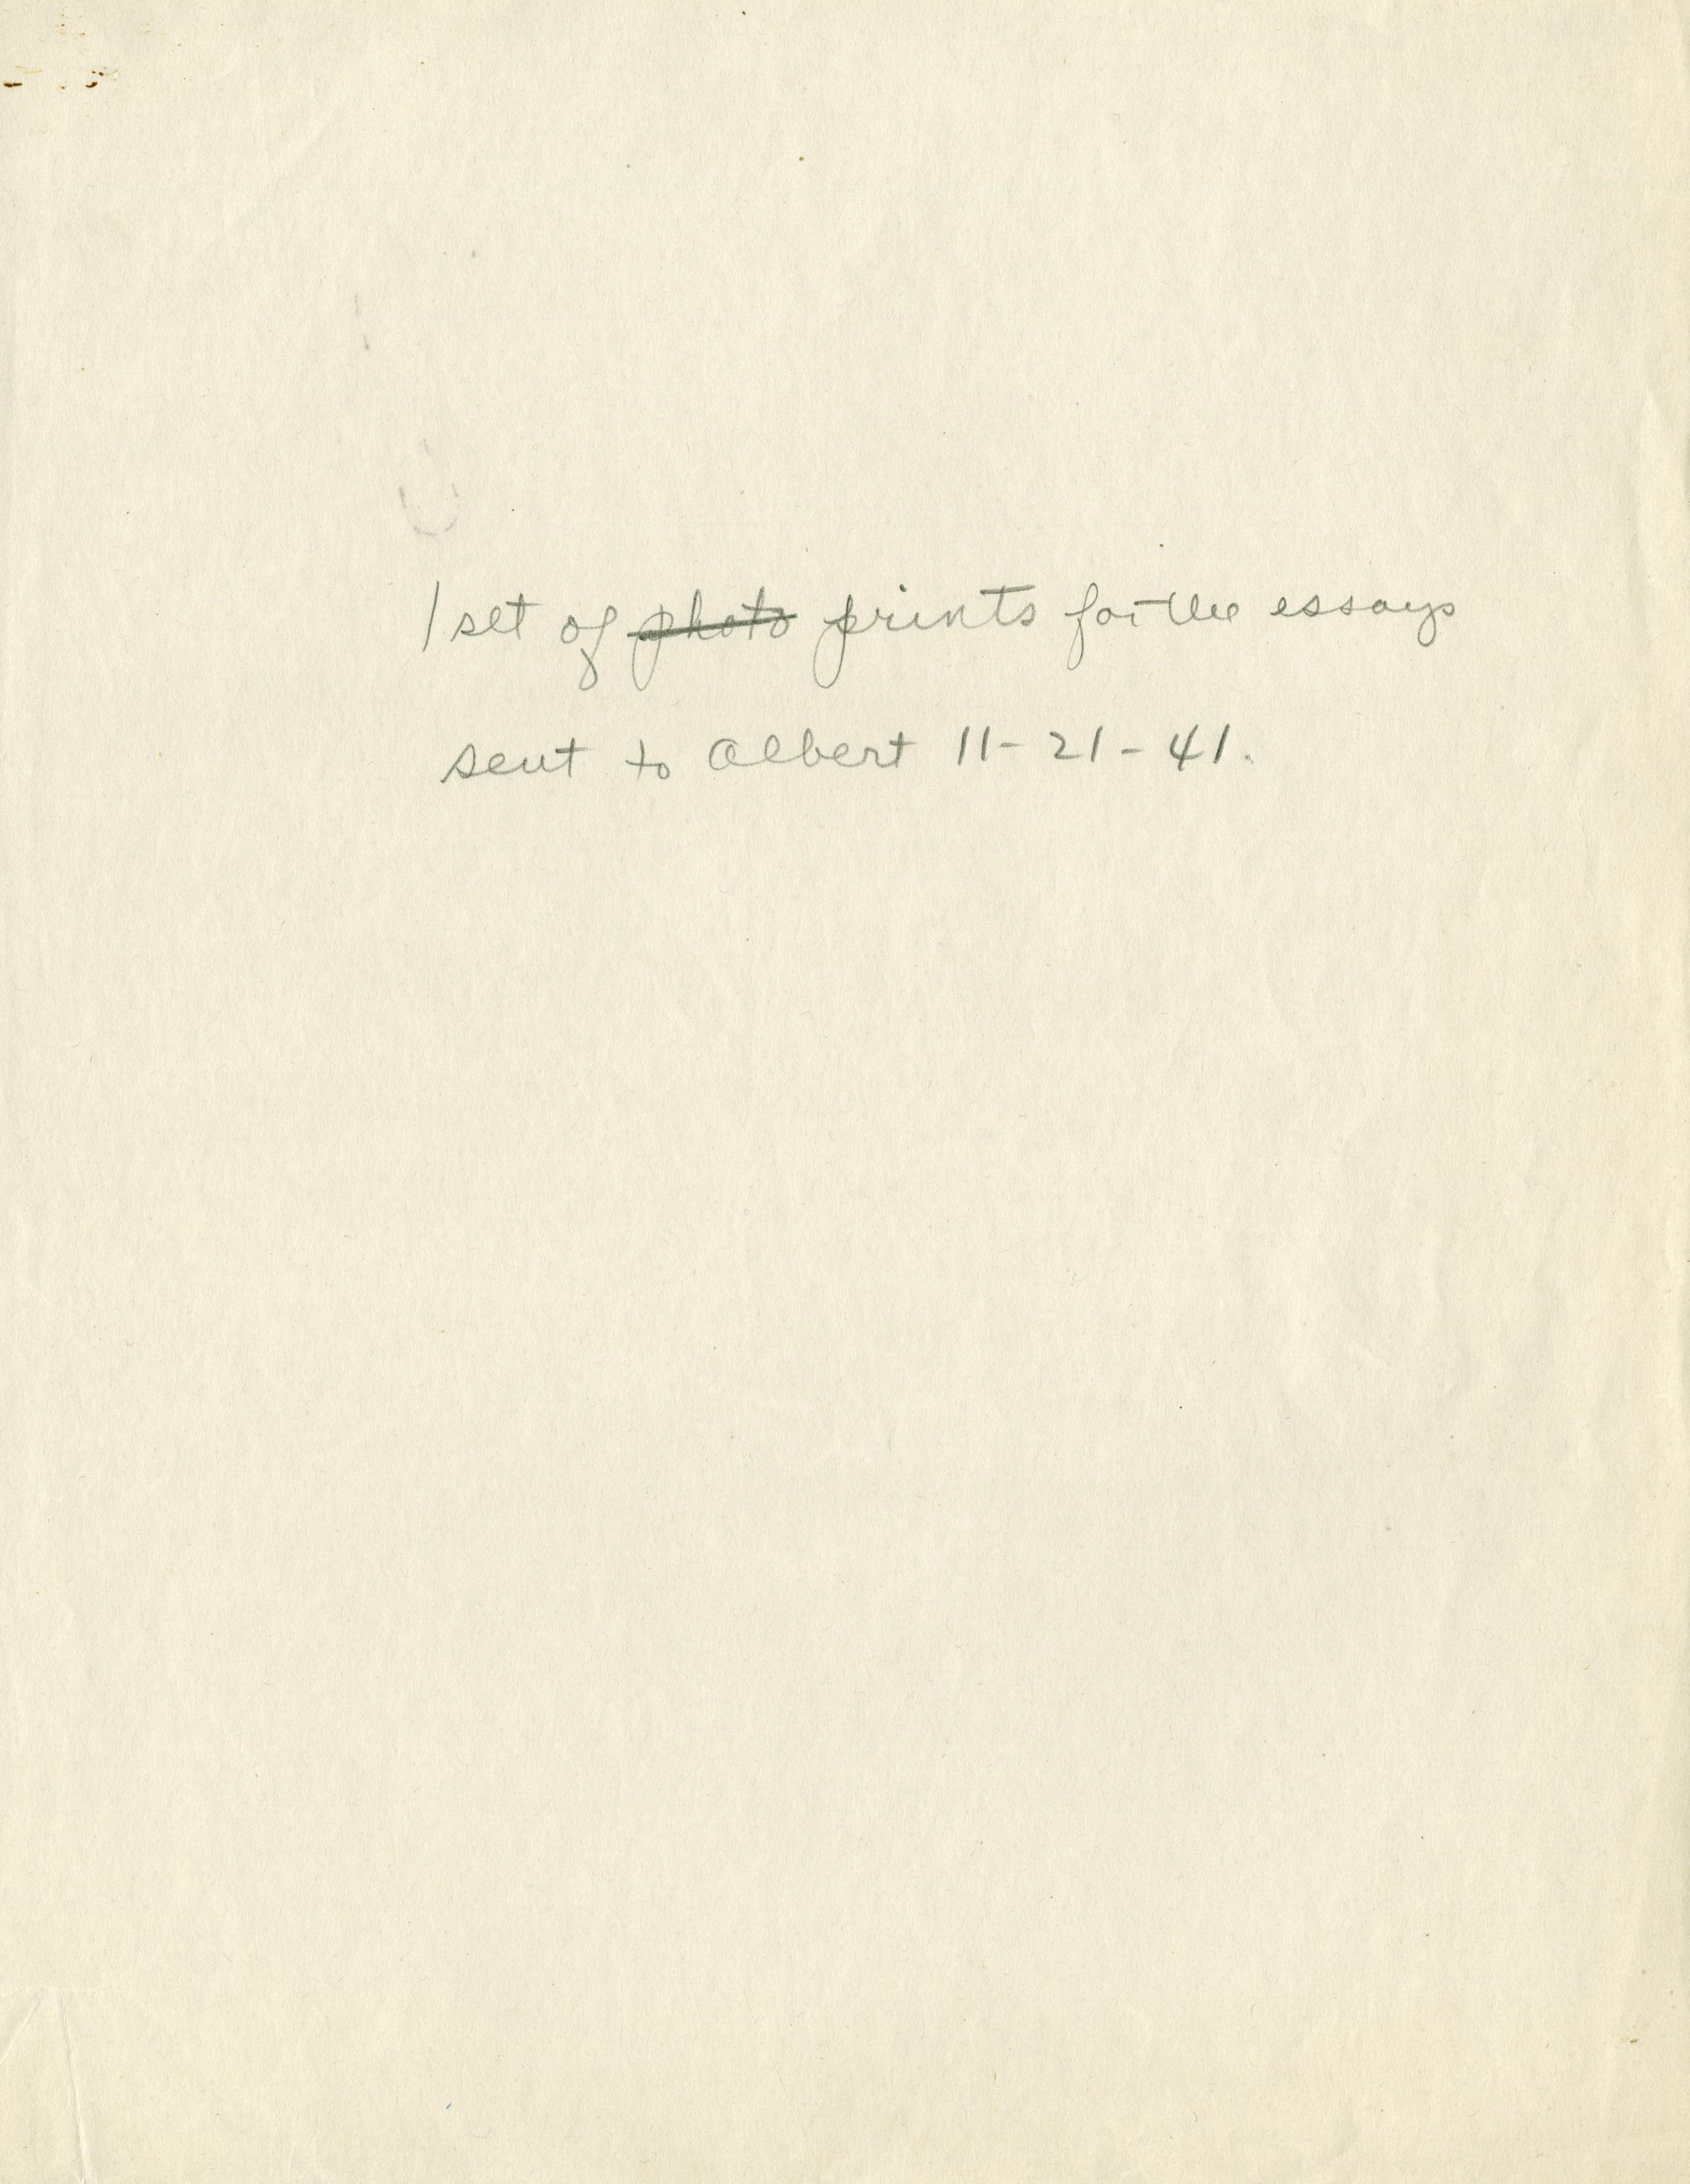 1 set of photo prints for the essays
sent to Albert 11-21-41.